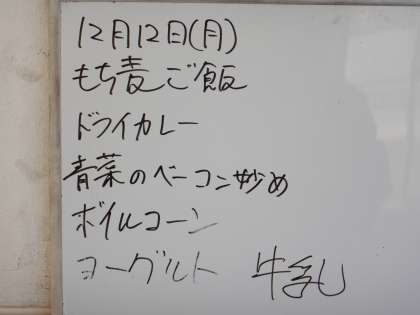 12月12日(月)
もち麦ご飯
ドライカレー
青菜のベーコン炒め
ボイルコーン
ヨーグルト 牛乳